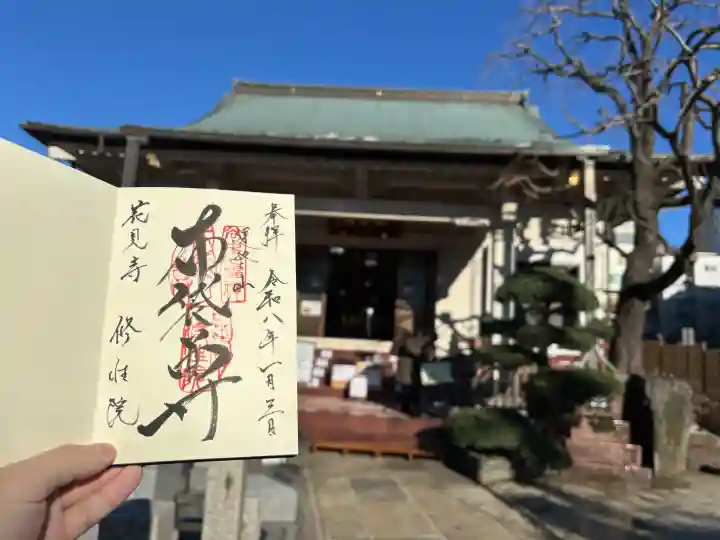 奉拝
令和八年一月三日
布袋尊
花見寺
修性院